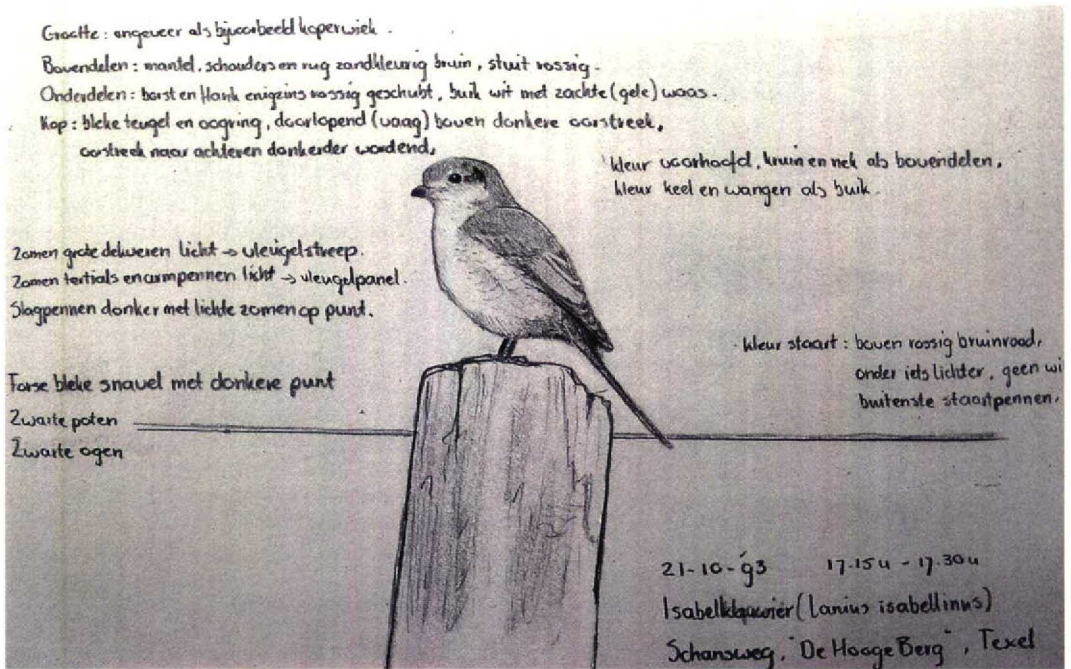 Grootte : ongeveer als bijvoorbeeld koperwiek .
Bovendelen : mantel, schouders en rug zandkleurig bruin , stuit rossig .
Onderdelen : borst en flank enigzins rossig geschubt, buik wit met zachte (gele) waas .
Kop : bleke teugel en oogring , doorlopend (vaag) boven donkere oorstreek,
oorstreek naar achteren donkerder wordend,
kleur voorhoofd, kruin en nek als bovendelen,
kleur keel en wangen als buik .
Zomen grote dekveren licht → vleugelstreep.
Zomen tertials en armpennen licht → vleugelpanel.
Slagpennen donker met lichte zomen op punt.
kleur staart : boven rossig bruinrood,
onder iets lichter , geen wi
buitenste staartpennen.
Forse bleke snavel met donkere punt
Zwarte poten
Zwarte ogen
21-10-'93 17.15u - 17.30u
Isabelklauwier (Lanius isabellinus)
Schansweg, "De Hooge Berg" , Texel